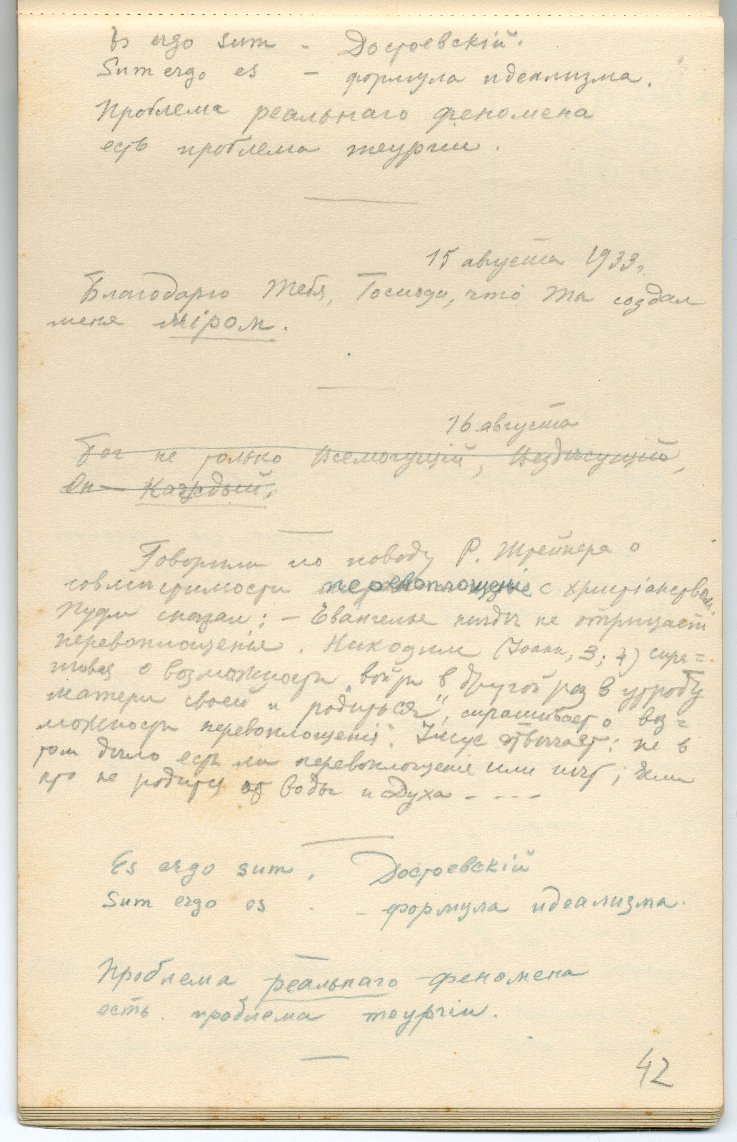 Es ergo sum – Достоевскій.
Sum ergo es – формула идеализма.
Проблема реальнаго феномена
есть проблема теургіи.
15 августа 1933 г.
Благодарю Тебя, Господи, что Ты создал
меня міром.
16 августа
Бог не только Всемогущій, Вездѣсущій,
Он – Каждый.
Говорили по поводу Р. Штейнера о
совместимости перевоплощенія с христіанством.
сказал: – Евангелье нигдѣ не отрицает
перевоплощенія. Никодим (Іоанн, 3; 4) спра=
шивая о возможности "войти в другой раз в утробу
матери своей и родиться", спрашивает о воз=
можности перевоплощенія. Іисус отвѣчает: не в
том дѣло есть ли перевоплощеніе или нѣт; если
кто не родится от воды и Духа - - - -
Es ergo sum. Достоевскій
Sum ergo es – формула идеализма.
Проблема реальнаго феномена
есть проблема теургіи.
42